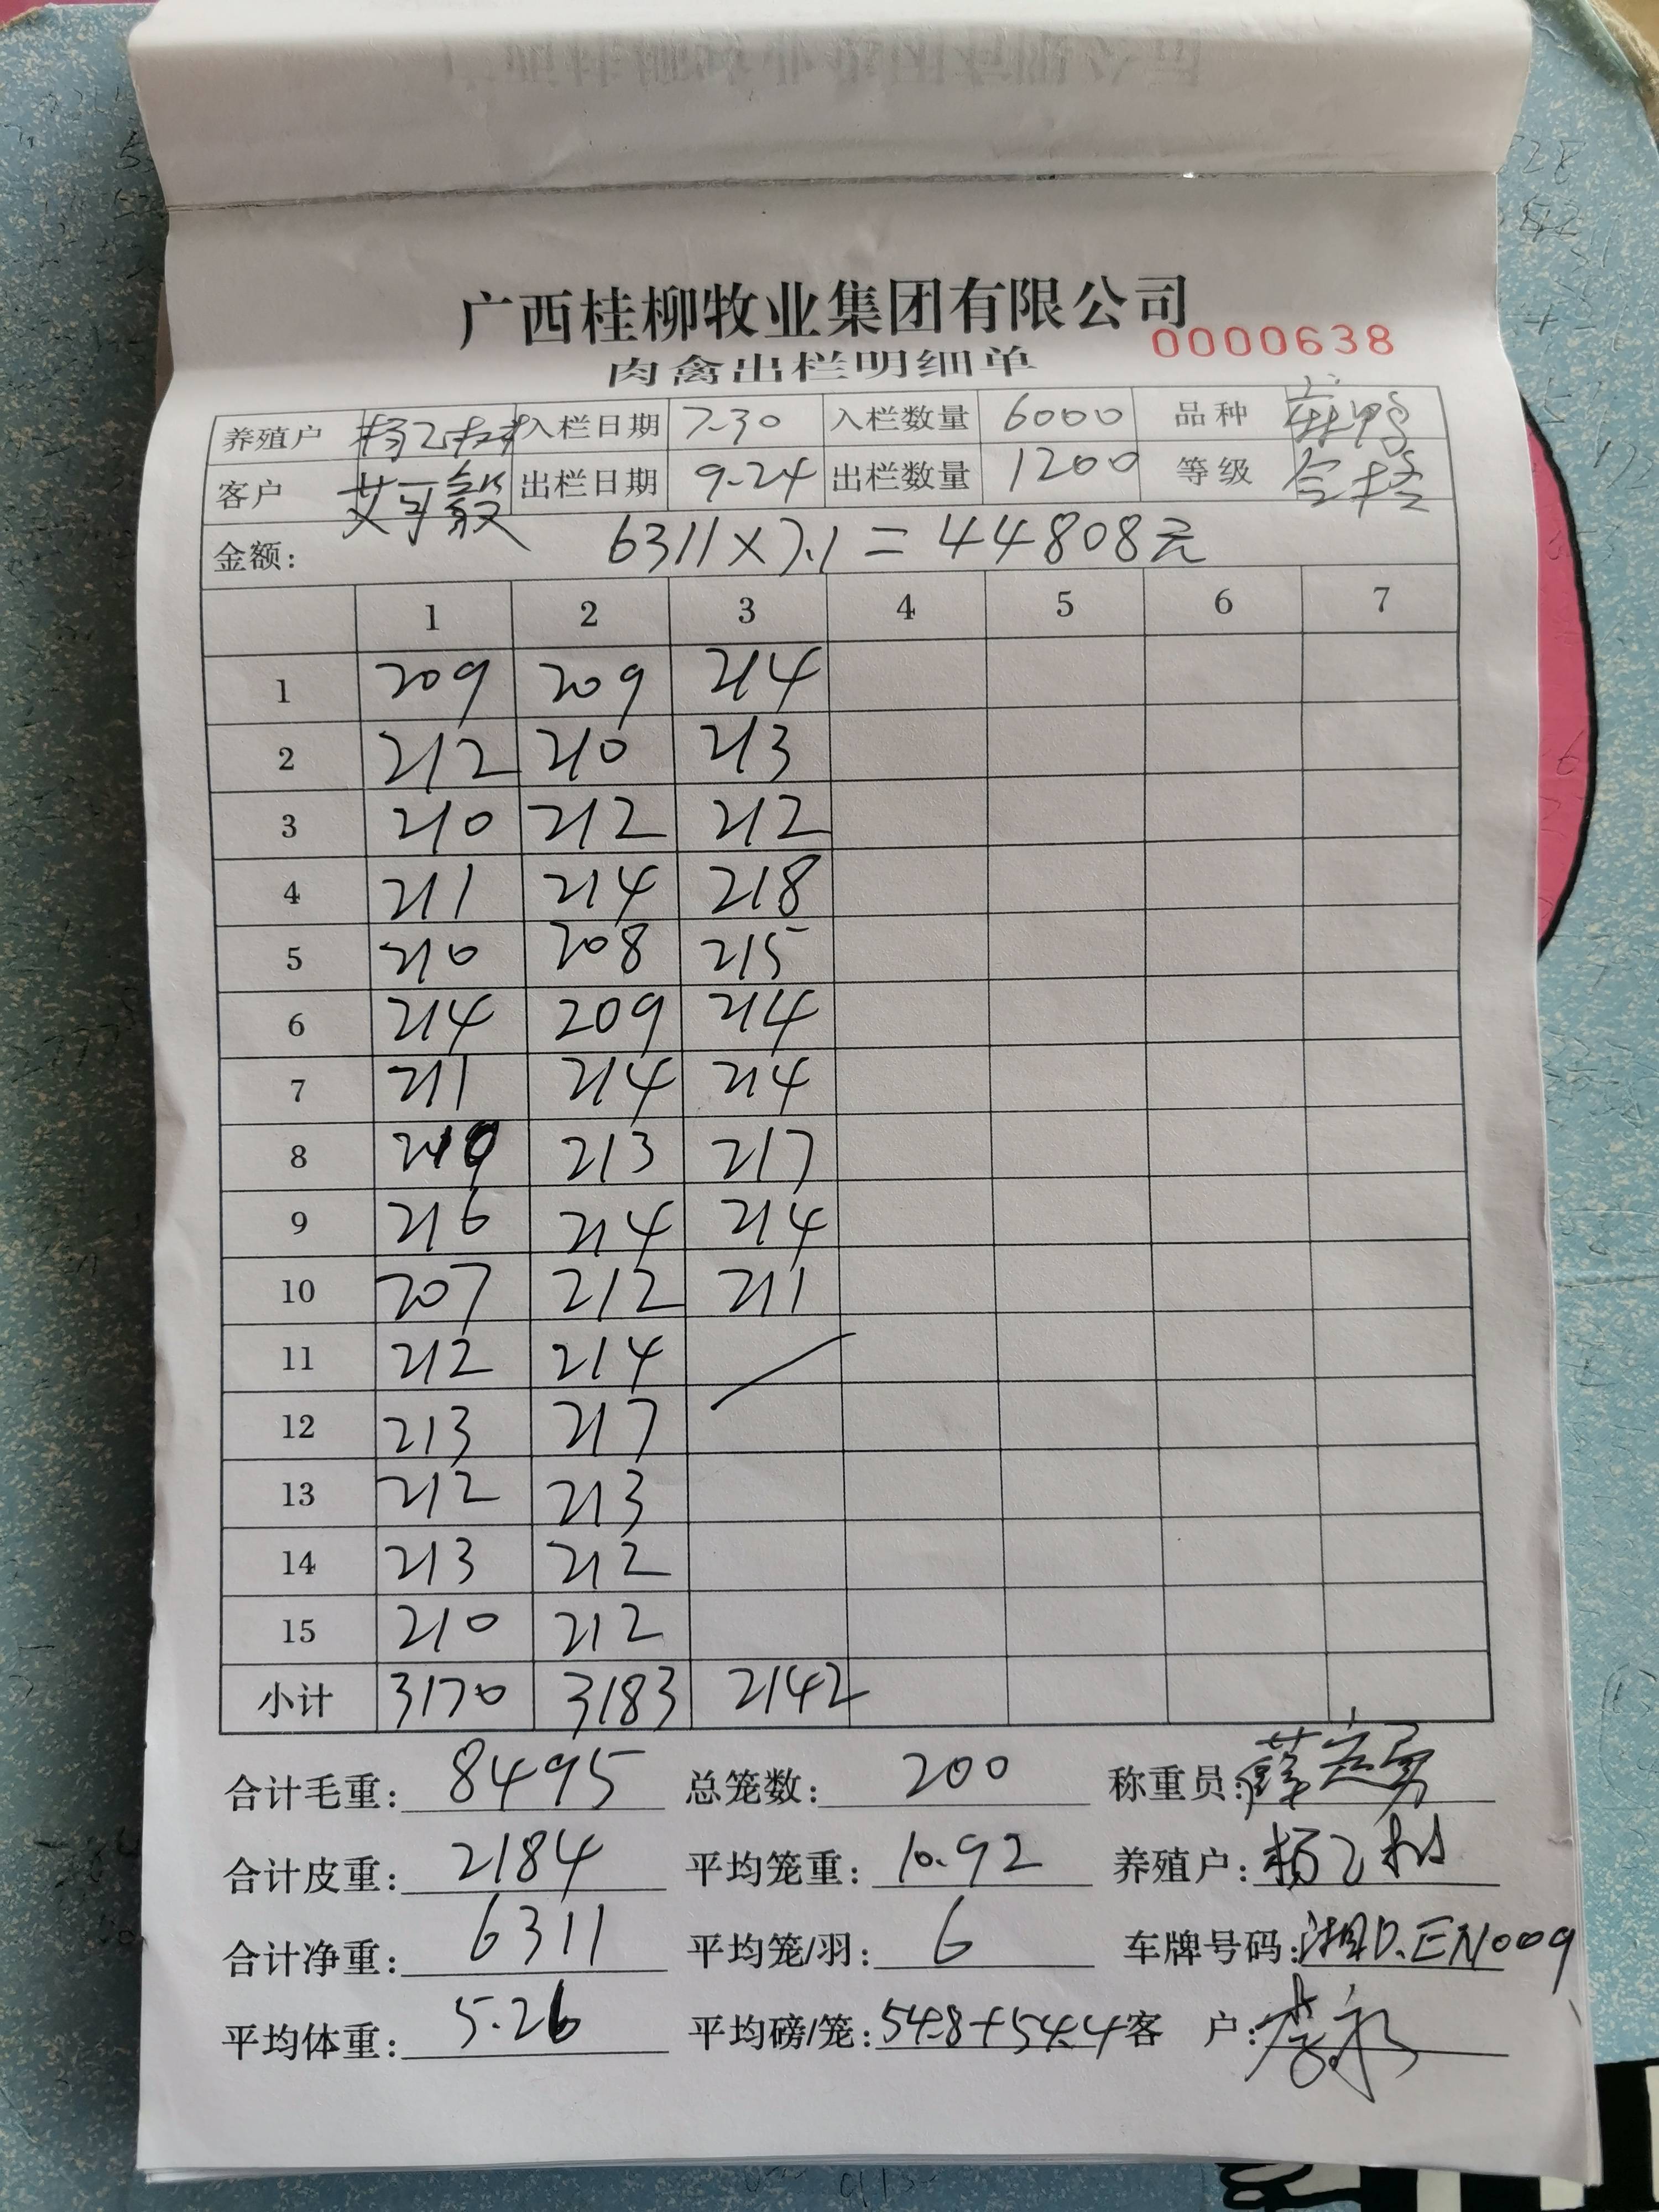 广西桂柳牧业集团有限公司
0000638
肉禽出栏明细单
养殖户 杨乙树 入栏日期 7-30 入栏数量 6000 品种 麻鸭
客户 出栏日期 9-24 出栏数量 1200 等级 合格
金额: 6311×7.1=44808元
1 2 3 4 5 6 7
1 209 209 214
2 212 210 213
3 210 212 212
4 211 214 218
5 210 208 215
6 214 209 214
7 211 214 214
8 210 213 217
9 216 214 214
10 207 212 211
11 212 214
12 213 217
13 212 213
14 213 212
15 210 212
小计 3170 3183 2142
合计毛重: 8495 总笼数: 200 称重员:
合计皮重: 2184 平均笼重: 10.92 养殖户: 杨乙树
合计净重: 6311 平均笼/羽: 6 车牌号码: 湘D.EN009
平均体重: 5.26 平均磅/笼: 548+544 客 户: